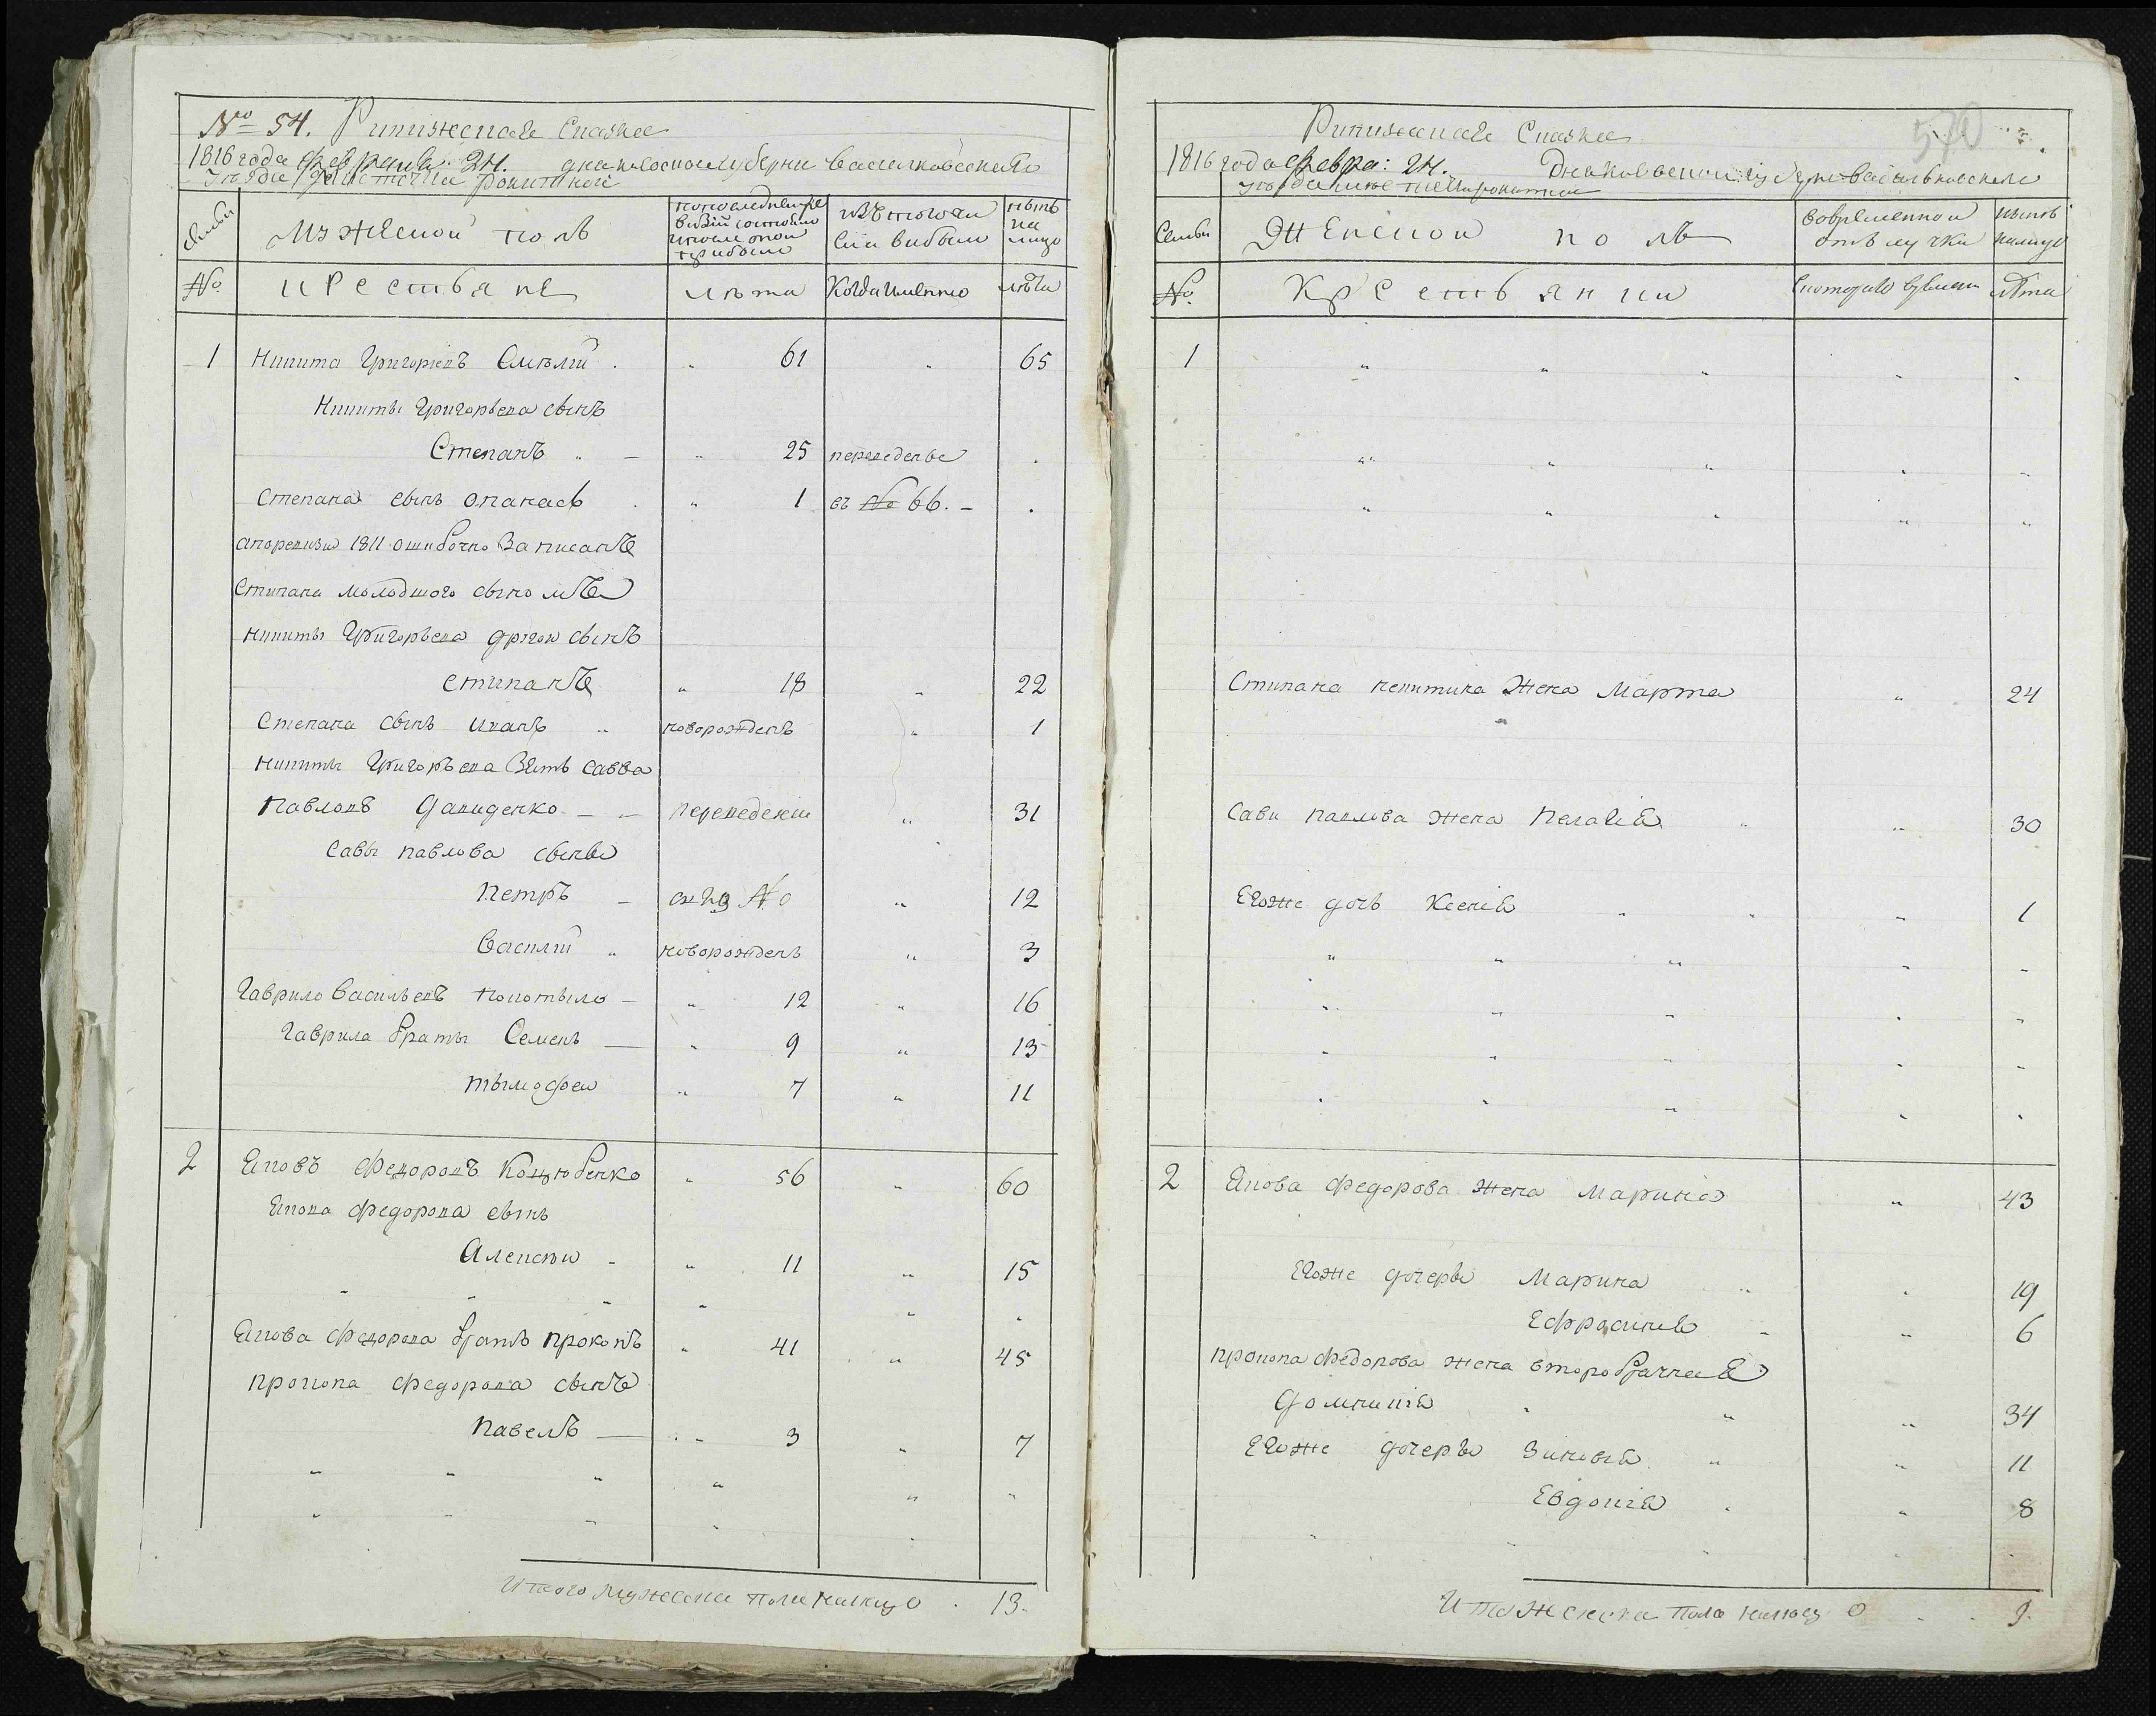 № 54. Ривижская Сказка
1816 года февраля 24. дня киевской губерни василковского
уезда местечка рокитной
семьи
мужеской полъ
по последней ревизїи состояло и после оной прибыло
изъ того числа выбыло
ныне на лицо
№
крестьяне
лета
Когда именно
лета
1 Никита Григориевъ Смѣлій . " 61 " 65
Никиты Григорьева сынъ
Степанъ " — " 25 переведены .
Степана сынъ опанасъ . " 1 въ № 66. – .
а поревизи 1811 ошибочно записанъ
Стипана молодшого сыномъ
никиты Григорьева другой сынъ
стипанъ " 18 " 22
Степана сынъ иванъ " новорожденъ " 1
никиты Григорьева зять савва
Павловъ Давиденко — – переведены " 31
Савы павлова сыны
Петръ – №0 " 12
Василій " новорожденъ " 3
Гаврило Васильевъ Кокотыло – " 12 " 16
Гаврила браты Семенъ — " 9 " 13
тымофей " 7 " 11
2 Яковъ Федоровъ Коцюбенко " 56 " 60
Якова Федорова сынъ
Алексѣй – " 11 " 15
" " " " " "
Якова Федорова братъ прокопъ " 41 " 45
прокопа Федорова сынъ
Павелъ — . – 3 " 7
" " " " " "
" " " " "
Итого мужеска пола налицо . 13.
570
Ривижская Сказка
1816 года февра: 24. Дня киевской губерни василковского
уезда
Семьи
Женской полъ
во временной отлучки
ныне налицо
№
Крестьянки
с которого времени
лѣта
1 " " " " "
" " " " "
" " " " "
Стипана никитина жена Марта " 24
"
Савы павлова жена Пелагїя " " 30
Егоже дочь Ксенїя . " " 1
" " " " "
" " " " "
" " " " "
" " " " "
2 Якова федорова жена марина " 43
Егоже дочеры Марина " . 19
Ефросинїя – " 6
прокопа федорова жена второбрачная
Домникїя " " " 34
Егоже дочеры Зиновїя " " 11
Евдокїя . " 8
" " " "
Ито женска пола налицо . . 9.